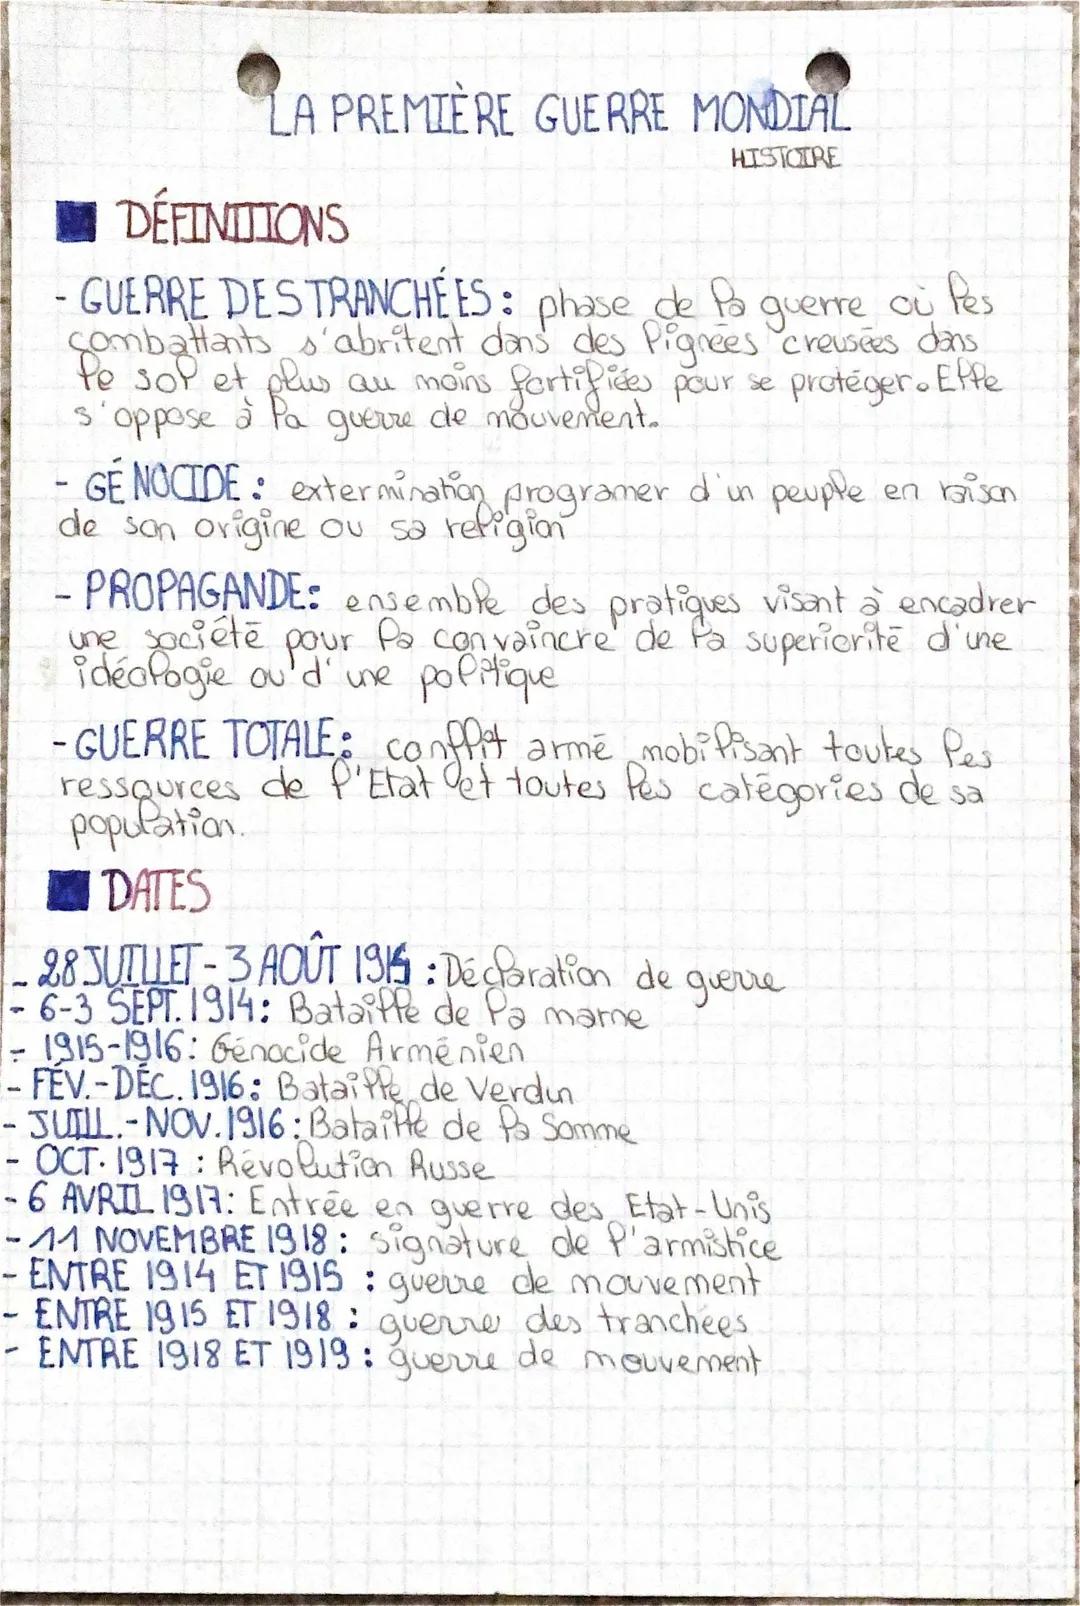 LA PREMIÈRE GUERRE MONDIAL
HISTOIRE
DÉFINITIONS
- GUERRE DES TRANCHÉES : phase de la guerre où les
combattants s'abritent dans des lignées creusées dans
le sol et plus au moins fortifiées pour se protéger. Elle
s'oppose à la guerre de mouvement.
- GÉNOCIDE : extermination programer d'un peuple en raison
de son origine ou sa religion
- PROPAGANDE : ensemble des pratiques visant à encadrer
une société pour la convaincre de la superiorité d'une
idéologie ou d'une politique
- GUERRE TOTALE : conflit armé mobilisant toutes les
ressources de l'Etat et toutes les catégories de sa
population.
DATES
- 28 JUILLET - 3 AOÛT 1914 : Déclaration de guerre
- 6-3 SEPT. 1914 : Bataille de la marne
- 1915-1916 : Génocide Arménien
- FÉV. - DÉC. 1916 : Bataille de Verdun
- JUILL. - NOV. 1916 : Bataille de la Somme
- OCT. 1917 : Révolution Russe
- 6 AVRIL 1917 : Entrée en guerre des Etat-Unis
- 11 NOVEMBRE 1918 : signature de l'armistice
- ENTRE 1914 ET 1915 : guerre de mouvement
- ENTRE 1915 ET 1918 : guerre des tranchées
- ENTRE 1918 ET 1919 : guerre de mouvement